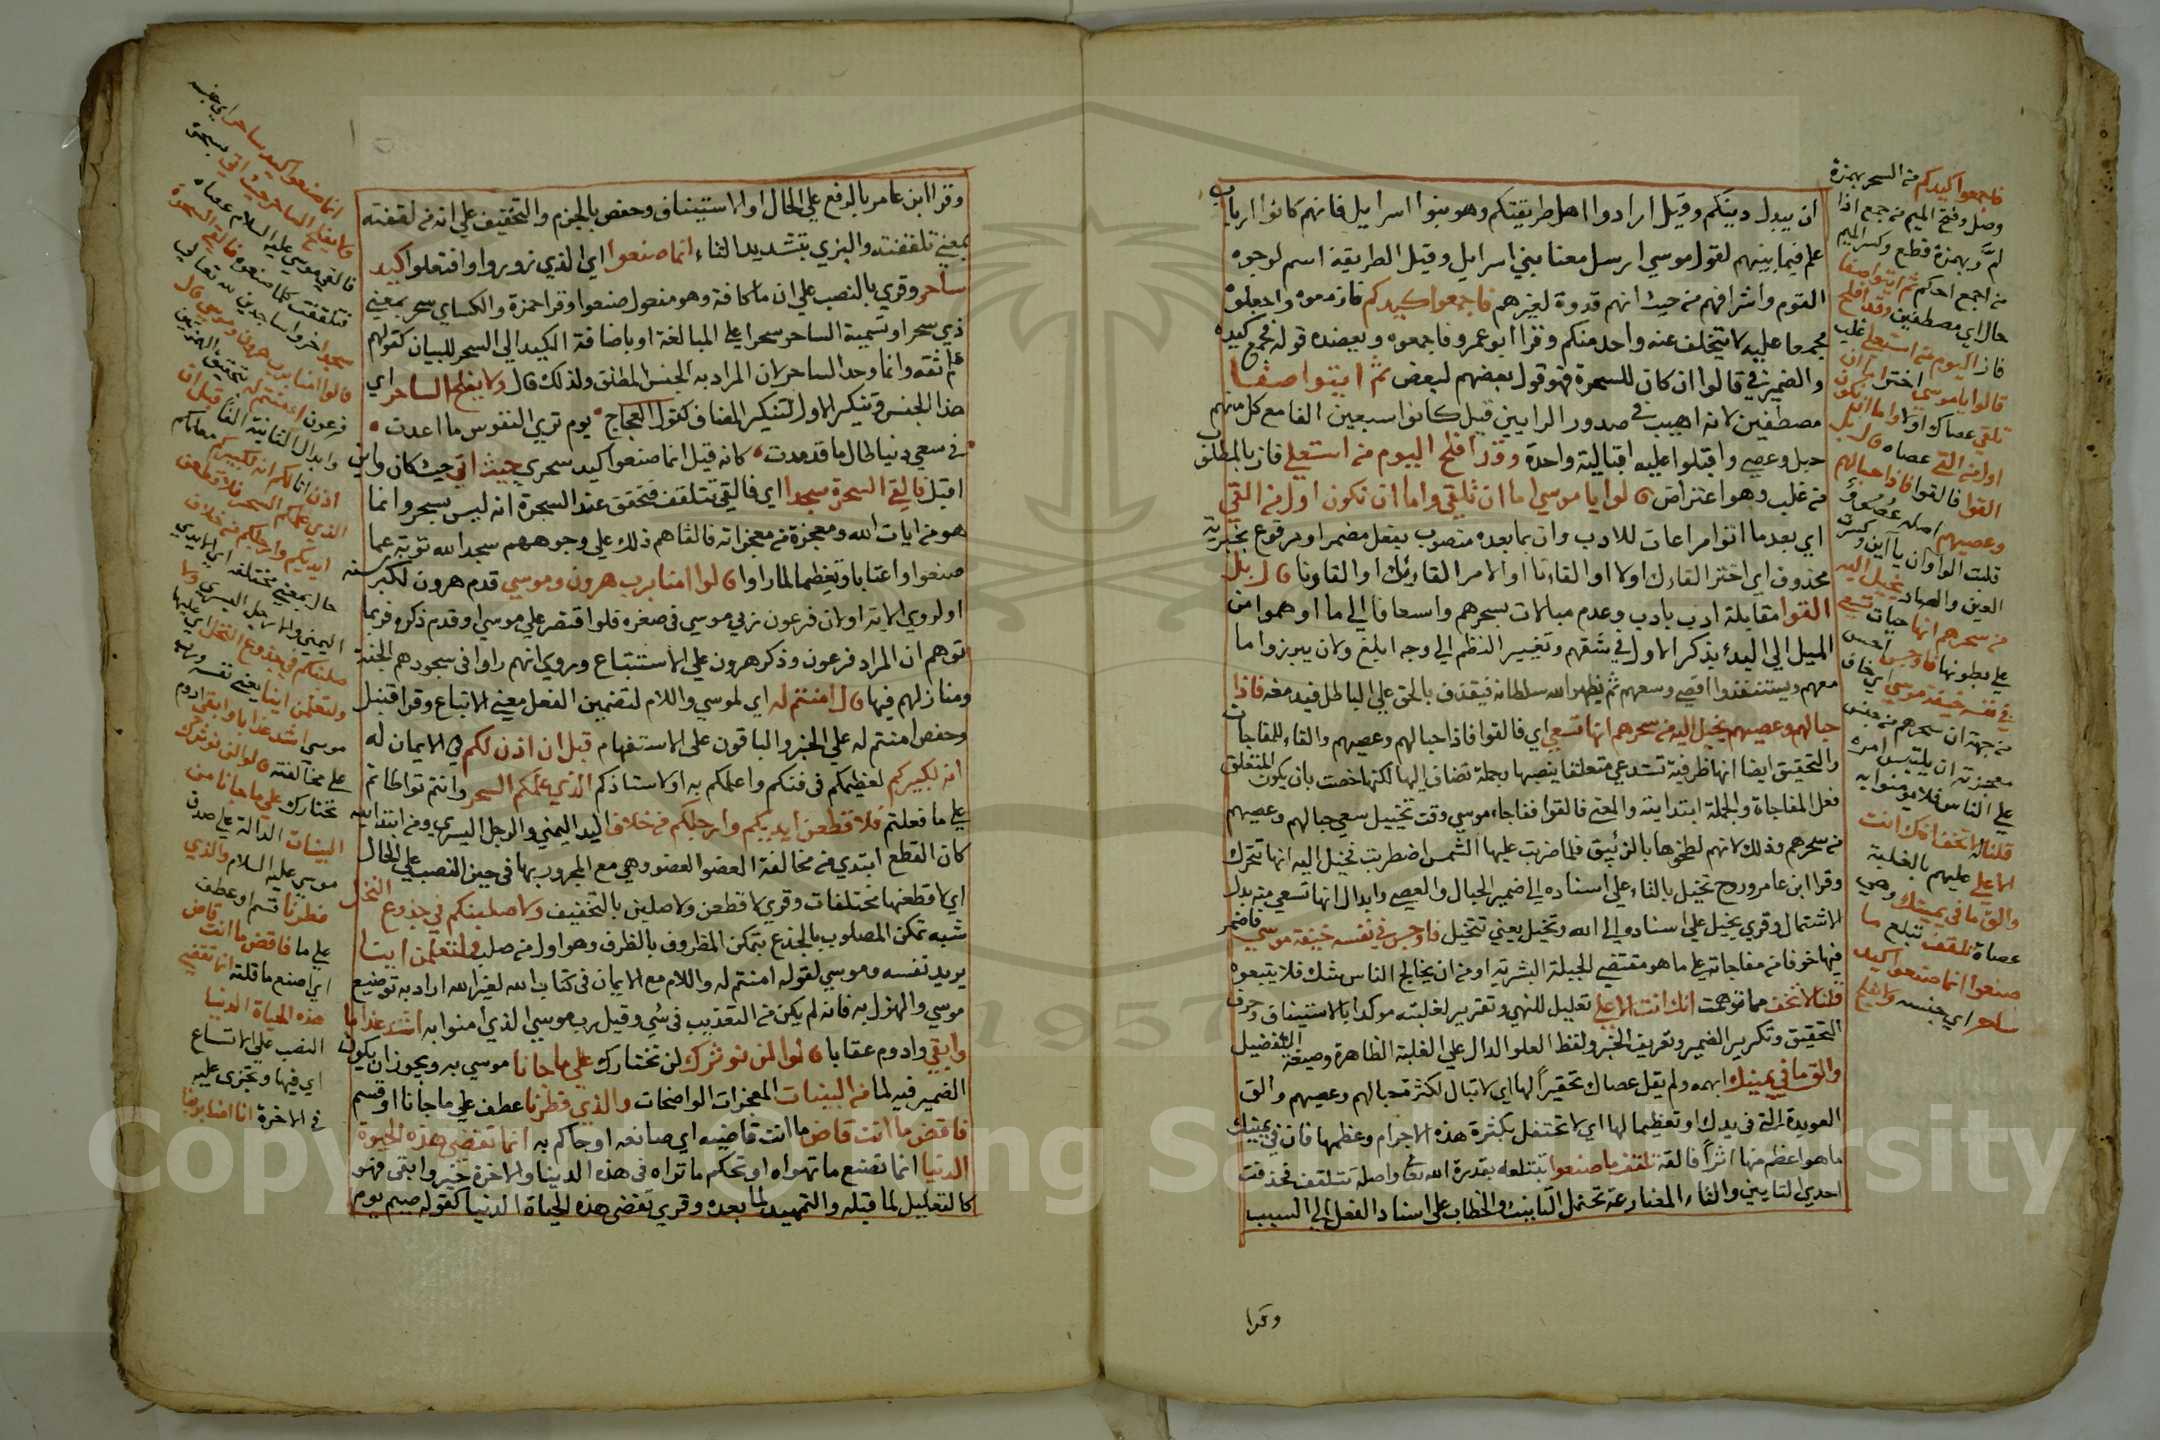 ان يبدل دينكم وقيل ارادوا اهل طريقتكم وهو بنوا اسرايل فانهم كانوا ارباب
علم فيما بينهم لقول موسي ارسل معنا بني اسرايل وقيل الطريقة اسم لوجوه
القوم واشرافهم من حيث انهم قدوة لغيرهم فاجمعوا كيدكم فازمعوه واجعلوه
مجمعا عليه لا يتخلف عنه واحد منكم وقرا ابو عمرو فاجمعوه ويعضده قوله فجمع كيده
والضمير في قالوا ان كان للسحرة فهو قول بعضهم لبعض ثم ايتوا صفا
مصطفين لانه اهيب في صدور الرايين قيل كانوا سبعين الفا مع كل منهم
حبل وعصي واقبلوا عليه اقبالية واحدة وقد افلح اليوم من استعلي فاز بالمطلوب
من غلب وهو اعتراض قالوا يا موسي اما ان تلقي واما ان نكون اول من القي
اي بعد ما اتوا مراعات للادب وان بما بعده منصوب بفعل مضمر او مرفوع بخبرية
محذوف اي اختر القاءك اولا او القاءنا او الامر القاءك او القاونا قال بل
القوا مقابلة ادب بادب وعدم مبالات بسحرهم واسعافا الي ما اوهموا من
الميل الي البدء بذكر الاول في شقهم وتغيير النظم الي وجه ابلغ ولان يبرزوا ما
معهم ويستنفذوا اقصي وسعهم ثم يظهر الله سلطانه فيقذف بالحق علي الباطل فيدمغه فاذا
حبالهم وعصيهم يخيل اليه من سحرهم انها تسعي اي فالقوا فاذا حبالهم وعصيهم والفاء للمفاجات
والتحقيق ايضا انها ظرفية تستدعي متعلقا ينصبها وجملة تضاف اليها لكنها خصت بان يكون المتعلق
فعل المفاجاة والجملة ابتدايية والمعني فالقوا ففاجاء موسي وقت تخييل سعي حبالهم وعصيهم
من سحرهم وذلك لانهم لطخوها بالزئبق فلما ضربت عليها الشمس اضطربت فخيل اليه انها تتحرك
وقرا ابن عامر وروح تخيل بالتاء علي اسناده الي ضمير الحبال والعصي وابدال انها تسعي منه بدل
الاشتمال وقري يخيل علي اسناده الي الله وتخيل يعني تتخيل فاوجس في نفسه خيفة موسي فاضمر
فيها خوفا من مفاجاته علي ما هو مقتضي الجبلة البشرية او من ان يخالج الناس شك فلا يتبعوه
قلنا لا تخف مما توهمت انك انت الاعلي تعليل للنهي وتقرير لغلبته موكدا بالاستيناف وحرف
التحقيق وتكرير الضمير وتعريف الخبر ولفظ العلو الدال علي الغلبة الظاهرة وصيغة التفضيل
والق ما في يمينك ابهمه ولم يقل عصاك تحقيراً لها اي لا تبال لكثرة حبالهم وعصيهم والق
العويدة التي في يدك او تعظيما لها اي لا تحتفل بكثرة هذه الاجرام وعظمها فان في يمينك
ما هو اعظم منها اثراً فالقه تلقف ما صنعوا تبتلعه بقدرة الله تعالى واصله تتلقف فحذفت
احدي التايين والتاء المضارعة تحتمل التانيث والخطاب علي اسناد الفعل الي السبب
وقرا
فاجمعوا كيدكم من السحر بهمزة
وصل وفتح الميم من جمع اذا
لمّ وبهمزة قطع وكسر الميم
من اجمع احكم ثم ايتوا صفا
حال اي مصطفين وقد افلح
فاز اليوم من استعلي غلب
قالوا يا موسي اختر اما ان
تلقي عصاك اولا واما ان نكون
اول من القي عصاه قال بل
القوا فالقوا فاذا حبالهم
وعصيهم اصله عصوو
قلبت الواوان يائين وكسرت
العين والصاد يخيل اليه
من سحرهم انها حيات تسعي
علي بطونها فاوجس احس
في نفسه خيفة موسي اي خاف
من جهة ان سحرهم من جنس
معجزته ان يلتبس امره
علي الناس فلا يومنوا به
قلنا له لا تخف انك انت
الاعلي عليهم بالغلبة
والق ما في يمينك وهي
عصاه تلقف تبتلع ما
صنعوا انما صنعوا كيد
ساحر اي جنسه ولا يفلح
وقرا ابن عامر بالرفع علي الحال او الاستيناف وحفص بالجزم والتخفيف علي انه من لقفته
بمعني تلقفته والبزي بتشديد التاء انما صنعوا اي الذي زوروا وافتعلوا كيد
ساحر وقري بالنصب علي ان ما كافة وهو مفعول صنعوا وقرا حمزة والكساي سحر بمعني
ذي سحر او تسمية الساحر سحرا علي المبالغة او باضافة الكيد الي السحر للبيان كقولهم
علم فقه وانما وحد الساحر لان المراد به الجنس المطلق ولذلك قال ولا يفلح الساحر اي
هذا الجنس وتنكير الاول لتنكير المضاف كقول العجاج يوم تري النفوس ما اعدت
في سعي دنيا طال ما قد مدت كانه قيل انما صنعوا كيد سحري حيث اتي حيث كان واين
اقبل فالقي السحرة سجدا اي فالقي فتلقفت فتحقق عند السحرة انه ليس بسحر وانما
هو من ايات الله ومعجزة من معجزاته فالقاهم ذلك علي وجوههم سجدا لله توبة عما
صنعوا واعتابا وتعظيما لما راوا قالوا امنا برب هرون وموسي قدم هرون لكبر سنه
او لروي الاية او لان فرعون ربي موسي في صغره فلو اقتصر علي موسي او قدم ذكره فربما
توهم ان المراد فرعون وذكر هرون علي الاستتباع وروي انهم راوا في سجودهم الجنة
ومنازلهم فيها قال امنتم له اي لموسي واللام لتضمين الفعل معني الاتباع وقرا قنبل
وحفص امنتم له علي الخبر والباقون علي الاستفهام قبل ان اذن لكم في الايمان له
انه لكبيركم لعظيمكم في فنكم واعلمكم به او لاستاذكم الذي علمكم السحر وانتم تواطاتم
علي ما فعلتم فلاقطعن ايديكم وارجلكم من خلاف اليد اليمني والرجل اليسري ومن ابتدائية
كان القطع ابتدي من مخالفة العضو العضو وهي مع المجرور بها في حيز النصب علي الحال
اي لاقطعنها مختلفات وقري لاقطعن ولاصلبن بالتخفيف ولاصلبنكم في جذوع النخل
شبه تمكن المصلوب بالجذع بتمكن المظروف بالظرف وهو اول من صلب ولتعلمن اينا
يريد نفسه وموسي لقوله امنتم له واللام مع الايمان في كتاب الله لغير الله اراد به توضيع
موسي والهزل به فانه لم يكن من التعذيب في شي وقيل رب موسي الذي امنوا به اشد عذابا
وابقي وادوم عقابا قالوا لن نوثرك لن نختارك علي ما جانا موسي به ويجوز ان يكون
الضمير فيه لما من البينات المعجزات الواضحات والذي فطرنا عطف علي ما جانا او قسم
فاقض ما انت قاض ما انت قاضيه اي صانعه او حاكم به انما تقضي هذه الحيوة
الدنيا انما تصنع ما تهواه او تحكم ما تراه في هذه الدنيا والاخرة خير وابقي فهو
كالتعليل لما قبله والتمهيد لما بعده وقري تقضي هذه الحياة الدنيا كقوله صيم يوم
انما صنعوا كيد ساحر اي جنسه
ولا يفلح الساحر حيث اتي بسحره
فالقي موسي عليه السلام عصاه
فتلقفت كلما صنعوه فالقي السحرة
سجدا خروا ساجدين لله تعالي
قالوا امنا برب هرون وموسي قال
فرعون اءمنتم له بتحقيق الهمزتين
وابدال الثانية الفاً قبل ان
اذن انا لكم انه لكبيركم معلمكم
الذي علمكم السحر فلاقطعن
ايديكم وارجلكم من خلاف
حال بمعني مختلفة اي الايدي
اليمني والارجل اليسري ولا
صلبنكم في جذوع النخل اي عليها
ولتعلمن اينا يعني نفسه ورب
موسي اشد عذابا وابقي ادوم
علي مخالفته قالوا لن نوثرك
نختارك علي ما جانا من
البينات الدالة علي صدق
موسي عليه السلام والذي
فطرنا قسم او عطف
علي ما فاقض ما انت قاض
اي اصنع ما قلته انما تقضي
هذه الحياة الدنيا
النصب علي الاتساع
اي فيها وتجزي عليه
في الاخرة انا امنا بربنا
1957
Copyright © King Saud University